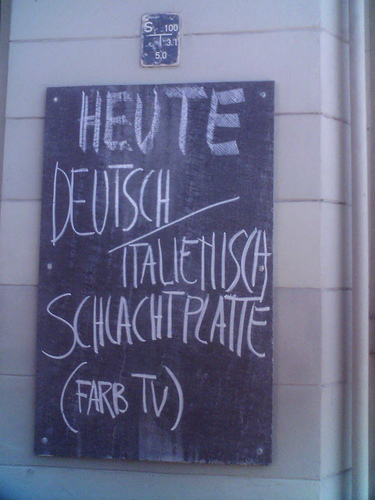 S 100
3.1
5.0
HEUTE
DEUTSCH/
ITALIENISCH
SCHLACHTPLATTE
(FARB TV)